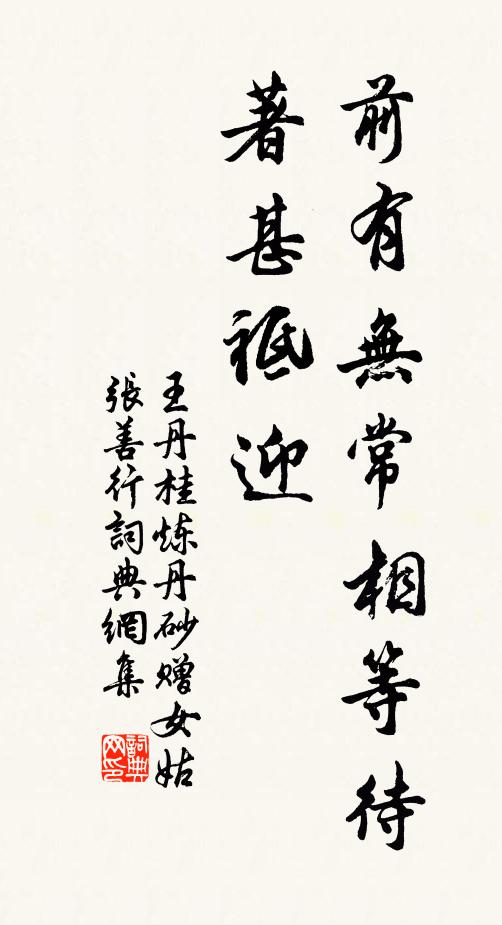 前有無常相等待
著甚祗迎
王丹桂炼丹砂赠女姑
張善行詞典網集
詞典
网印